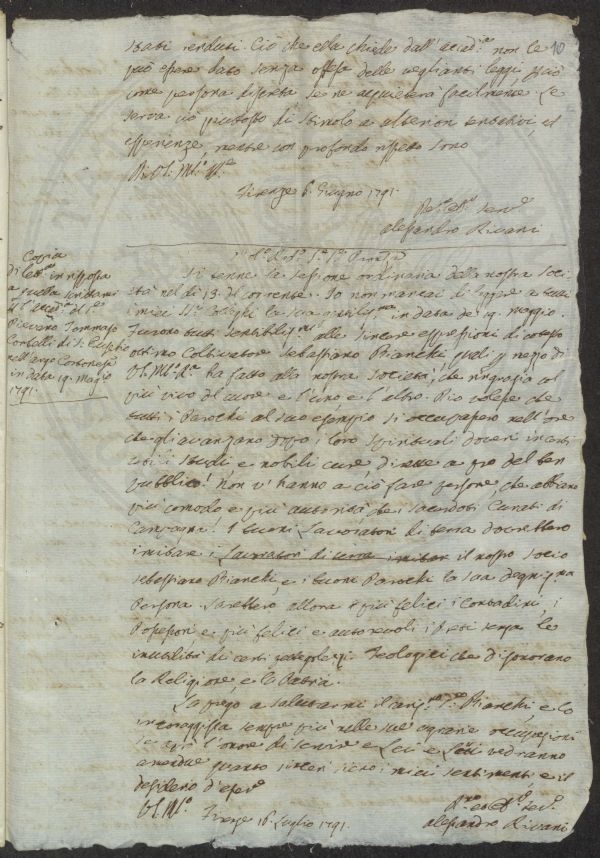 10
stati renduti. Ciò che ella chiede dall'accad.ª non le
può essere dato senza offesa delle veglianti leggi
come persona discreta se ne acquieterà facilmente. Le
serva ciò piuttosto di stimolo a ulteriori tentativi, ed
esperienze, mentre con profondo rispetto sono
Di VS. Ml.º
Firenze 6. Giugno 1791.
alessandro Rivani
Copia
di lett.ª in risposta
a quella scritta
Pievano Tommaso
Corbelli di S. Eusebio
nell'agro Cortonese
in data 19. Mag.º
1791.
Si tenne la sessione ordinaria della nostra Soci-
età nel dì 13. del corrente. Io non mancai di leggere a tutti
i miei SS.ri Colleghi la sua in data de' 19. maggio.
Furono tutti sensibiliss.mi alle sincere espressioni di cotesto
ottimo Coltivatore Sebastiano Bianchi
ha fatto alla nostra Società, che ringrazia col
più vivo del cuore e l'uno e l'altro. Dio volesse che
tutti i Parochi al suo esempio si occupassero nell'ore
che gli avanzano dopo i loro spirituali doveri in certi
utili studj e nobili cure dirette a pro del ben
pubblico! Non v'hanno a ciò fare persone, che abbiano
più comodo e più autorità che i sacerdoti Curati di
Campagna! I buoni Lavoratori di terra dovrebbero
imitare i Lavoratori di terra imitar il nostro socio
Sebastiano Bianchi, e i buoni Parochi la sua degniss.ma
Persona. Sarebbero allora più felici i Contadini, i
Possessori e più felici e autorevoli i Preti senza le
inutilità di certi pettegolezzi Teologici che disonorano
la Religione, e la Patria.
La prego a salutarmi il Bianchi e lo
incoraggisca sempre più nelle sue agrarie occupazioni
se avrò l'onore di servire e Lei e Lui vedranno
amendue quanto sinceri sieno i miei sentimenti e il
desiderio d'esser
VS. Ml.º
Firenze 16. Luglio 1791.
alessandro Rivani